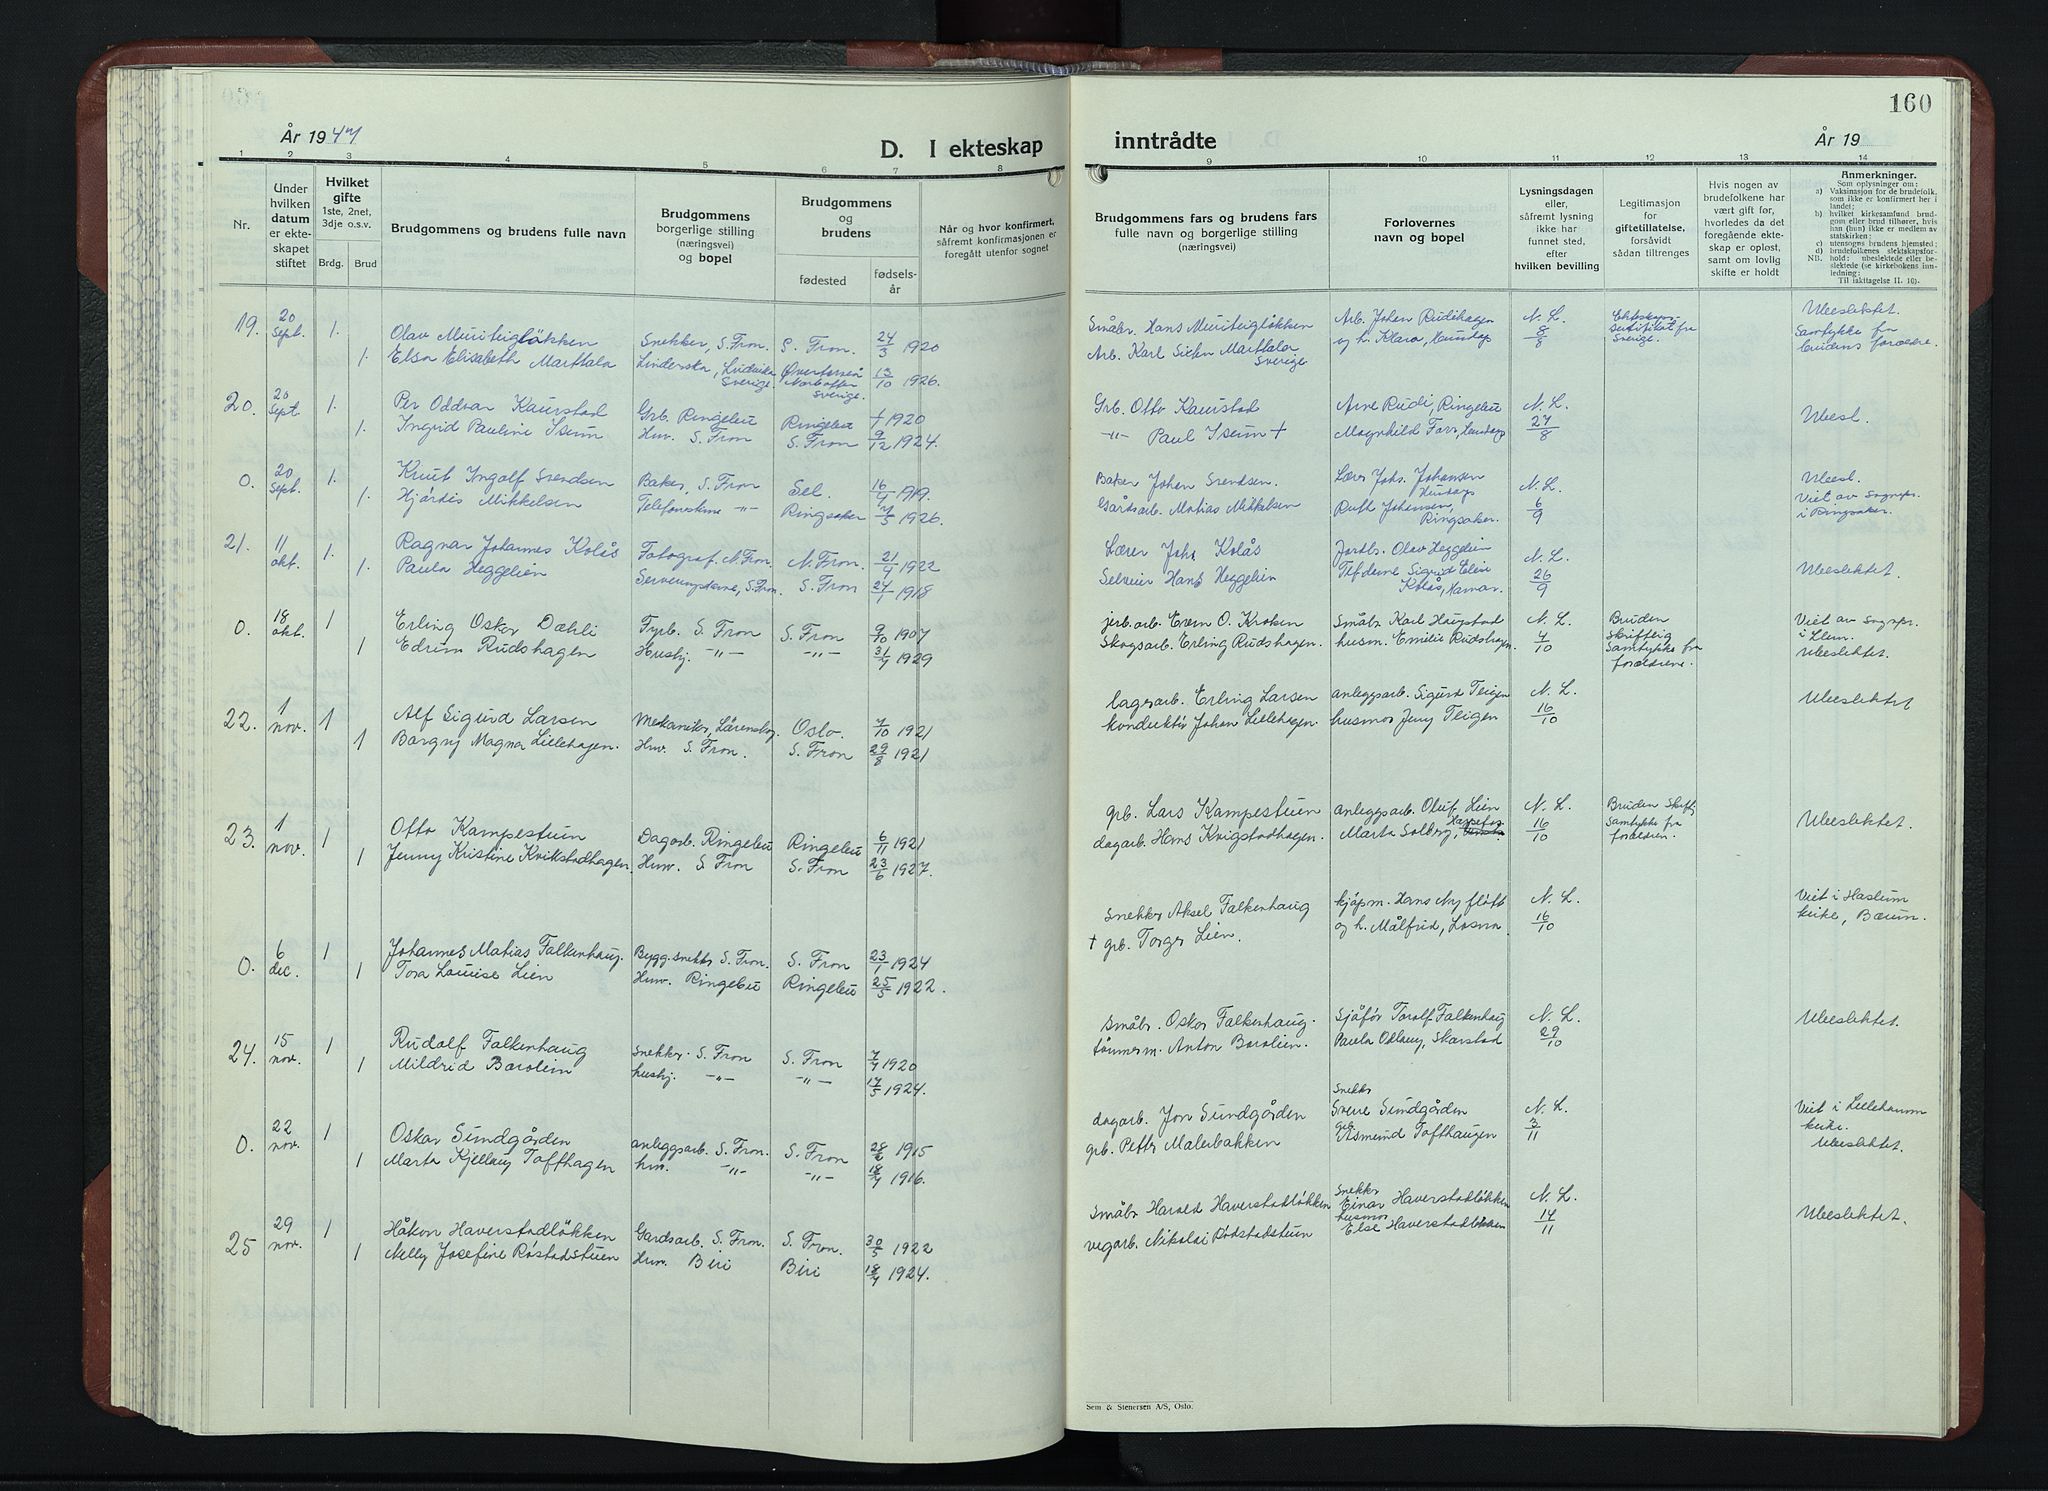 160
År 1947
D. I ekteskap
inntrådte
År 19
1 2 3 4 5 6 7 8
9 10 11 12 13 14
Nr.
Under hvilken datum er ekteskapet stiftet
Hvilket gifte
1ste, 2net, 3dje o.s.v.
Brdg. Brud
Brudgommens og brudens fulle navn
Brudgommens borgerlige stilling (næringsvei) og bopel
Brudgommens og brudens
fødested
fødsels-år
Når og hvor konfirmert, såfremt konfirmasjonen er foregått utenfor sognet
Brudgommens fars og brudens fars fulle navn og borgerlige stilling (næringsvei)
Forlovernes navn og bopel
Lysningsdagen eller, såfremt lysning ikke har funnet sted, efter hvilken bevilling
Legitimasjon for giftetillatelse, forsåvidt sådan tiltrenges
Hvis nogen av brudefolkene har vært gift før, hvorledes da det foregående ekteskap er opløst, samt om lovlig skifte er holdt
Anmerkninger.
Som oplysninger om:
a) Vaksinasjon for de brudefolk, som ikke er konfirmert her i landet;
b) hvilket kirkesamfund brudgom eller brud tilhører, hvis han (hun) ikke er medlem av statskirken;
c) utensogns brudens hjemsted;
d) brudefolkenes slektskapsforhold: ubeslektede eller beslektede (se kirkebokens innledning;
NB.
Til iakttagelse II. 10).
19. 20 sept. 1. Olav Muriteigløkken Snekker, S. Fron. S. Fron. 24/3 1920 Småbr. Hans Muriteigløkken Arb. Johan Rudihagen N. L. 8/8 Ekteskapssertifikat fra Sverige. Ubeslektet.
1. Elsa Elisabeth Marttala Ludvika Sverige. Norbotten Sverige. 13/10 1926. Arb. Karl Marttala Sverige og h. Klara, Hundorp Samtykke fra brudens foreldre.
20. 20 sept. 1. Per Oddvar Kaurstad Grb. Ringebu Ringebu 1920 Grb. Otto Kaurstad Arne Rudi, Ringebu N. L. 27/8 Ubesl.
1. Ingrid Pauline Isum Huv. S. Fron S. Fron 9/12 1924. -"- Paul Isum + Magnhild Fars, Hundorp
0. 20 sept. 1. Knut Ingolf Svendsen Baker, S. Fron Sel. 16/4 1919. Baker Johan Svendsen. Lærer Johs. Johansen Hundorp N. L. 6/9 Ubesl.
1. Hjørdis Mikkelsen Telefonistinne -"- Ringsaker 7/5 1926. Gårdsarb. Matias Mikkelsen Ruth Johansen, Ringsaker. Viet av sognepr. i Ringsaker.
21. 11 okt. 1. Ragnar Johannes Kolås Fotograf. N. Fron. N. Fron. 21/4 1922 Lærer Johs Kolås Jordbr. Olav Heggelien N. L. 26/9 Ubeslektet.
1. Paula Heggelien S. Fron. S. Fron 24/1 1918 Selveier Hans Heggelien Sigrid Elise Kolås, Hamar.
0. 18 okt. 1 Erling Oskar Dæhli Fyrb. S. Fron S. Fron 9/10 1907 jerb.arb. Even O. Kroken Småbr. Karl Haugstad N. L. 4/10 Bruden skriftlig samtykke fra foreldrene. Viet av sognepr. i Lem. Ubeslektet.
1 Edrun Rudshagen Hushj. -"- -"- 31/7 1929 Skogsarb. Erling Rudshagen. husm. Emilie Rudshagen.
22. 1 nov. 1 Alf Sigurd Larsen Mekaniker, Lørenskog Oslo. 7/10 1921 lagerarb. Erling Larsen anleggsarb. Sigurd Teigen N. L. 16/10 Ubeslektet
1 Borgny Magna Lillehagen. Huv. S. Fron. S. Fron 29/8 1921 konduktør Johan Lillehagen. husmor Jeny Teigen
23. 1 nov. 1 Otto Kampestuen Dagarb. Ringebu Ringebu 6/11 1921 grb. Lars Kampestuen anleggsarb. Oluf Lien N. L. 16/10 Bruden skriftl. samtykke fra foreldren. Ubeslektet.
1 Jenny Kristine Kvikstadhagen Huv. S. Fron S. Fron 23/6 1927. dagarb. Hans Kvigstadhagen. Marta Solberg,
0. 6 dec. 1 Johannes Matias Falkenhaug. Bygg.snekker S. Fron. S. Fron 23/1 1924 Snekker Aksel Falkenhaug kjøpm. Hans Nyfløtt N. L. 16/10 Viet i Haslum kirke, Bærum.
1 Tora Louise Lien Huv. Ringebu Ringebu 25/5 1922. + grb. Torger Lien. og h. Målfrid, Losna
24. 15 nov. 1 Rudolf Falkenhaug snekker. S. Fron S. Fron 7/7 1920 Småbr. Oskar Falkenhaug. Sjåfør Toralf Falkenhaug N. L. 29/10 Ubeslektet.
1 Mildrid Barolien hushj. -"- -"- 17/5 1924. tømmerm. Anton Barolien. Paula Odlaug, Skarstad
0. 22 nov. 1 Oskar Sundgården anleggsarb. S. Fron. S. Fron 1915 dagarb. Jon Sundgården Snekker Svene Sundgården N. L. 3/11 Viet i Lillehamm kirke. Ubeslektet.
1 Marta Kjellaug Tofthagen huv. -"- -"- 18/7 1916. grb. Petter Malerbakken grb. Asmund Tofthaugen
25 29 nov. 1 Håkon Haverstadløkken Gardsarb. S. Fron. S. Fron. 30/5 1922 småbr Harald Haverstadløkken Snekker Einar Haverstadløkken N. L. 14/11 Ubeslektet.
1 Nelly Josefine Røstadstuen Huv. Biri Biri 18/7 1924. vegarb. Nikolai Rødstadstuen husmor Else Haverstadløkken
Sem & Stenersen A/S, Oslo.